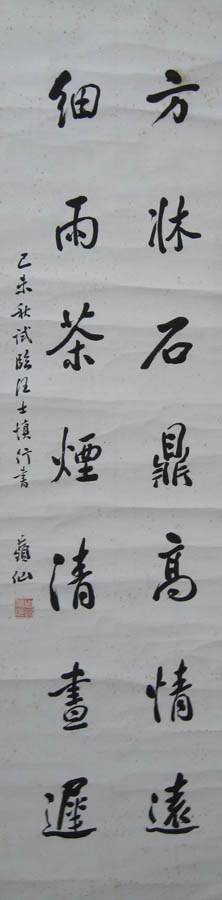 方牀石鼎高情遠
細雨茶煙清晝遲
己未秋試臨汪士慎行書
仙